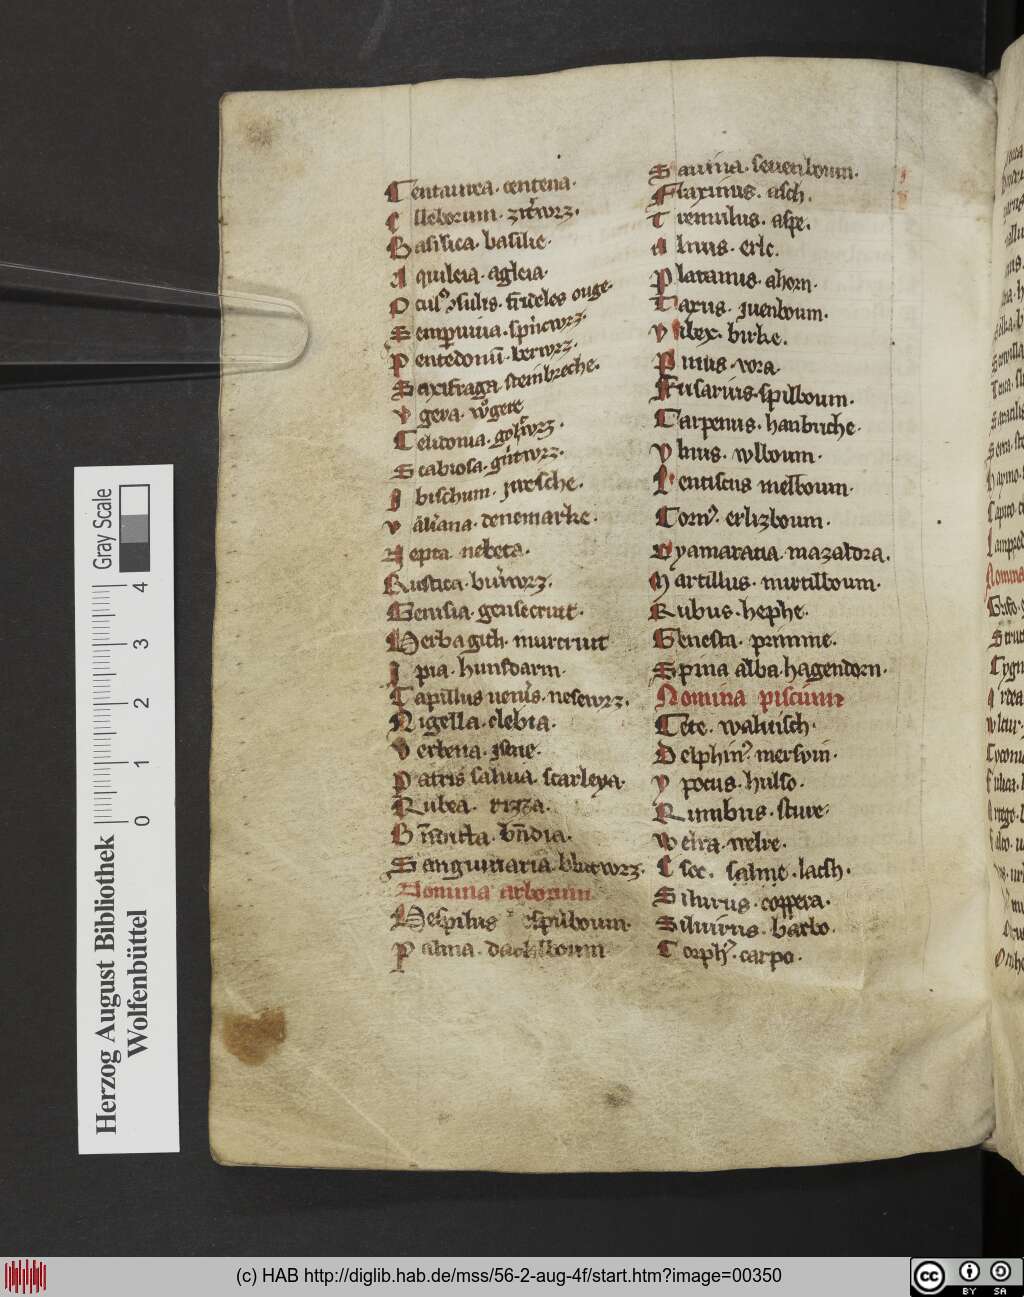 Centaurea. centena.
Elleborum. zit'wrz.
Basilica. basilie.
Aquileia. agleia.
Ocul' solis. frideles ouge.
Semp'uiua. sp'ncwrz.
Pentedoniu. berwrz.
Saxifraga. steinbreche.
Vgera. wogere
Celidonia. golt'wrz.
Scabiosa. gu'twrz.
Ibischum. iwesche.
Valiana. denemarke.
Nepta. nebeta.
Rustica. bur'wrz.
Gensia. gensecruit.
Herbagith. murcruit
Ipia. hunsdarm.
Capillus uenis. nesewrz.
Nigella. clebita.
Verbena. isine.
Patris salvia. scarleya.
Rubea. rizza.
B'ndicta. b'ndia.
Sanguinaria. blutwrz.
Nomina arborum
Mespilus espilboum.
Palma. dachilboum
Sauina. seuenboum.
Flaxinus. asch.
Tremulus. aspe.
Alnus. erle.
Platanus. ahorn.
Taxus. iuenboum.
Vibex. birke.
Pinus. vora.
Fusarius. spilboum.
Carpenus. hanbuche.
Vlmus. wlboum.
Lentiscus melboum.
Corn'. erlizboum.
Dyamaratia. mazaldra.
Martillus. mirtilboum.
Rubus. hephe.
Genesta. primme.
Spina alba. hagendorn.
Nomina piscium
Cete. waluisch.
Delphin'. mersvin.
Ypocus. hulso.
Rumbus. sture.
Welra. welre.
Esoc. salme. lachs.
Silurus. coppera.
Siluirus. barbo.
Corph'. carpo.
Gray Scale
0 1 2 3 4
Herzog August Bibliothek
Wolfenbüttel
(c) HAB http://diglib.hab.de/mss/56-2-aug-4f/start.htm?image=00350
cc BY SA